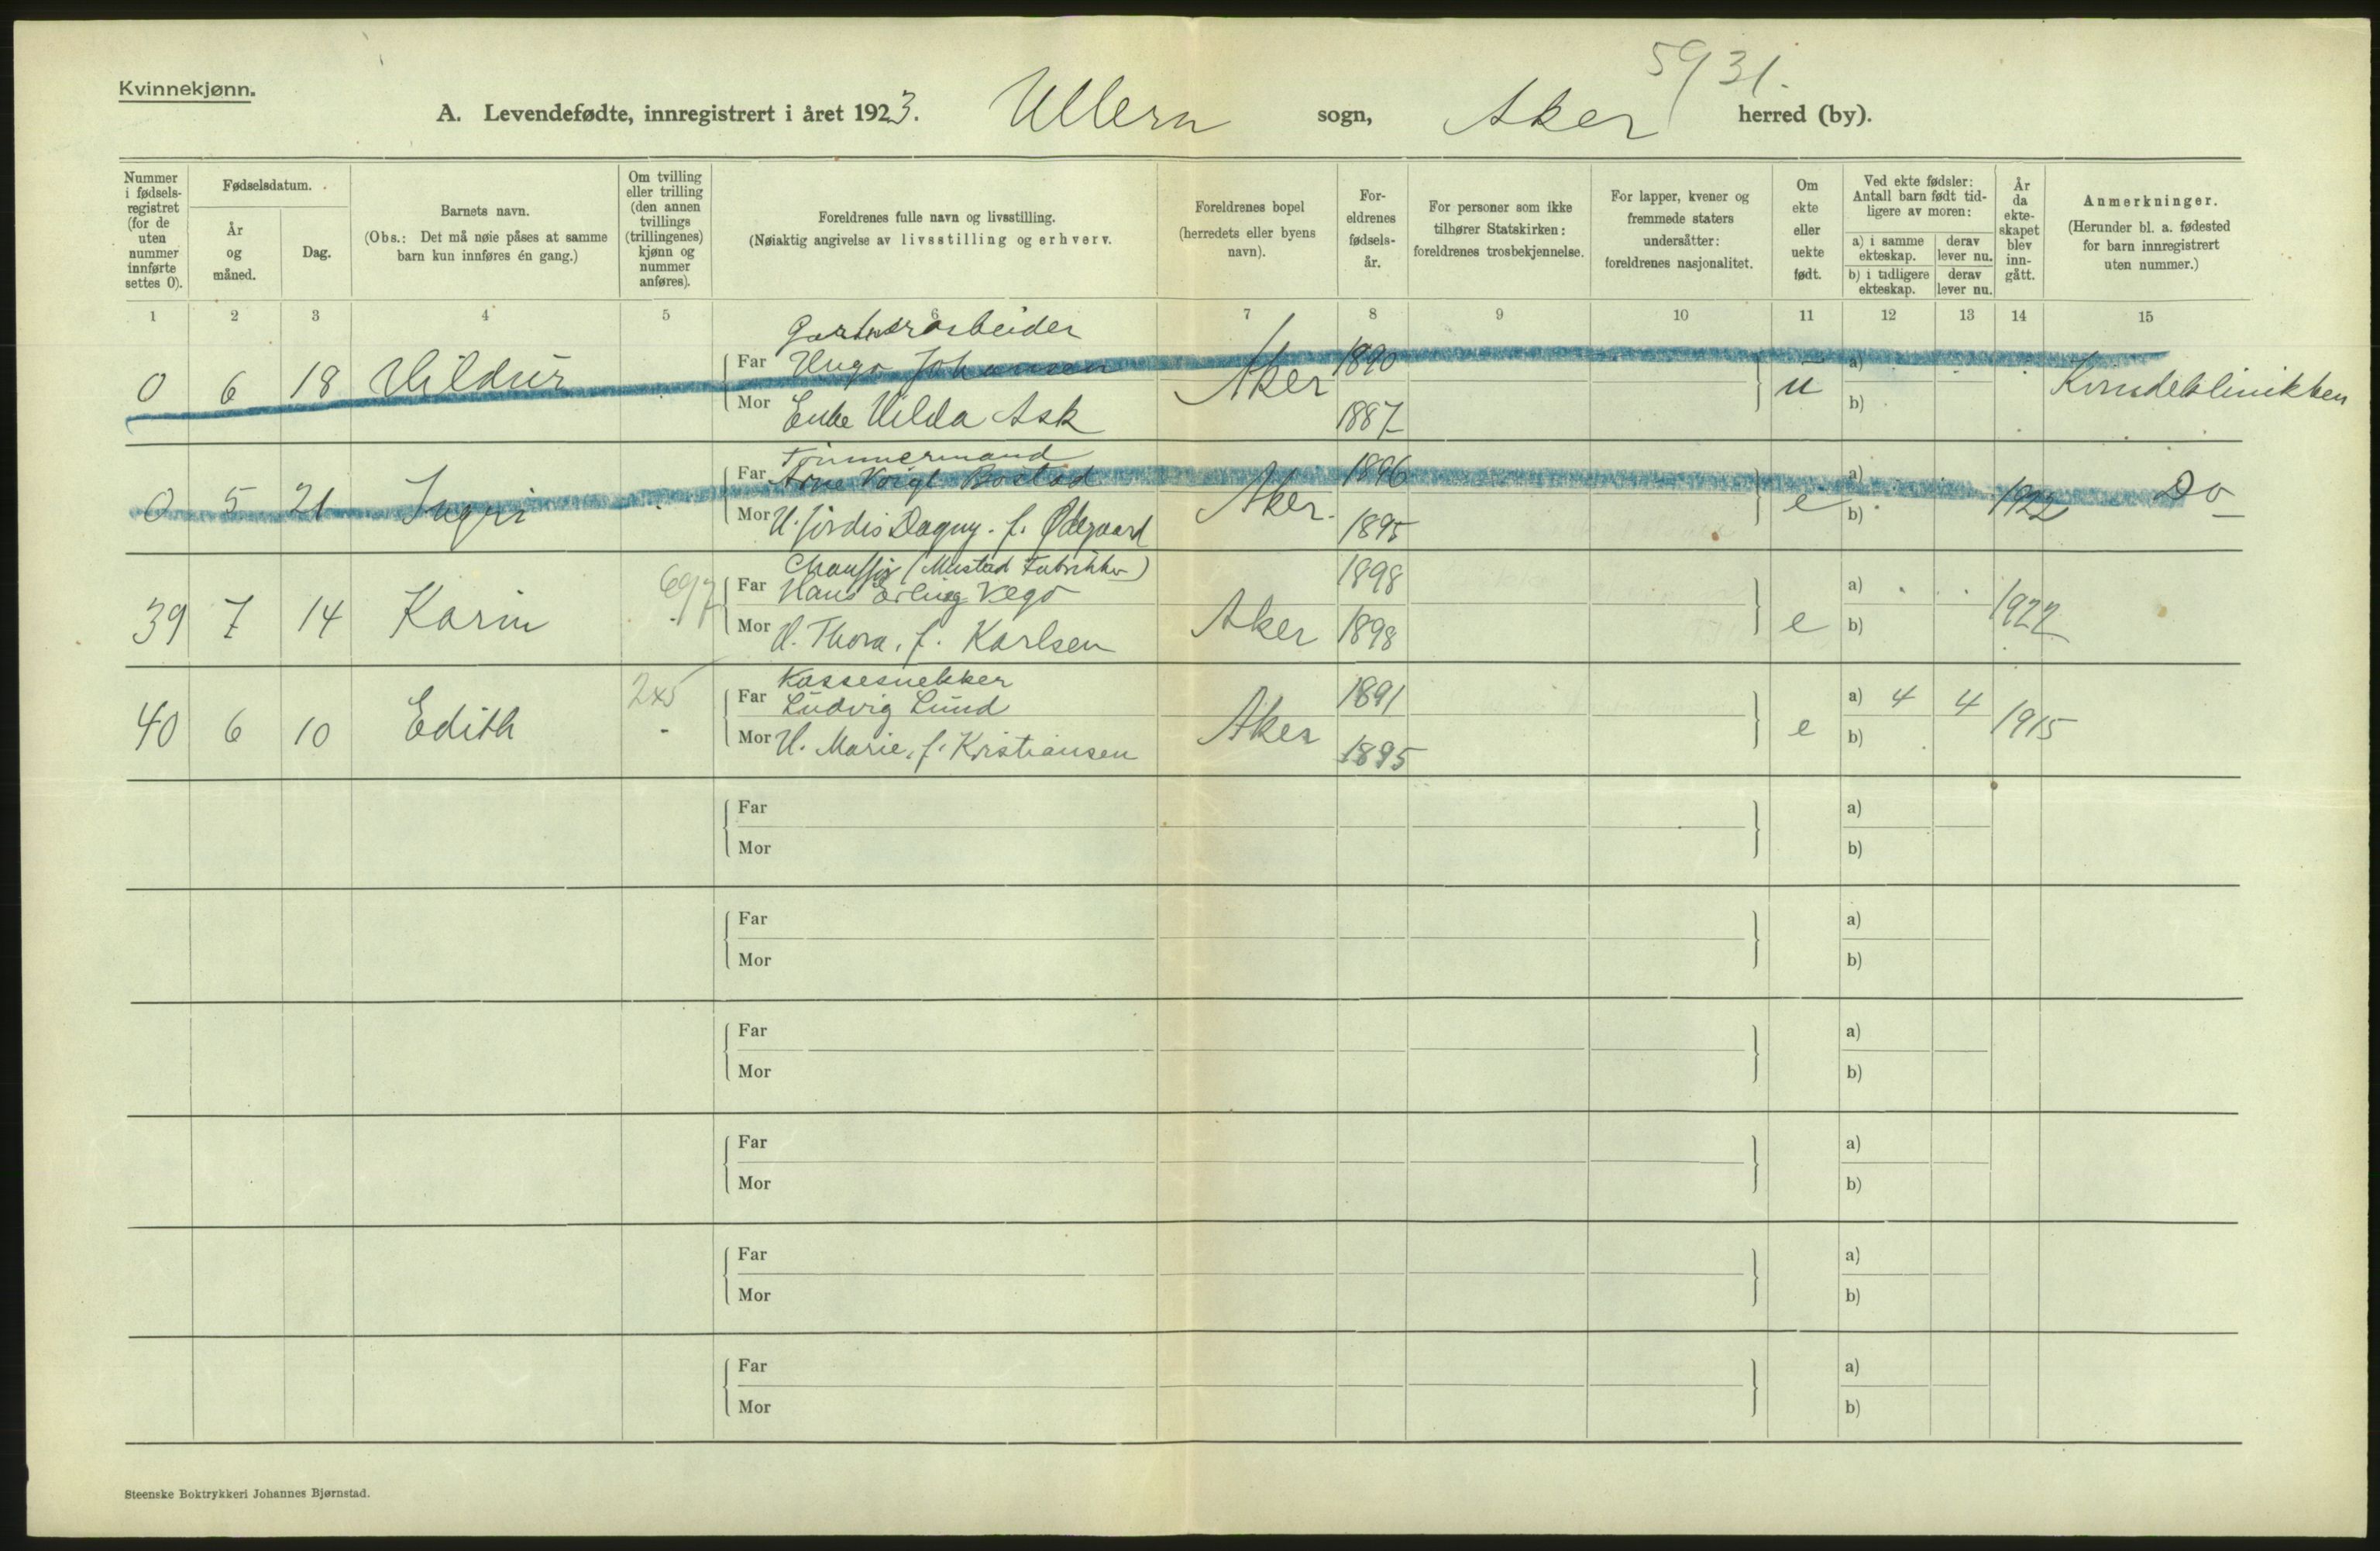 Kvinnekjønn.
5931.
A. Levendefødte, innregistrert i året 1923. Ullern sogn, Aker herred (by).
Nummer i fødsels-registret (for de uten nummer innførte settes 0).
Fødselsdatum.
År og måned.
Dag.
Barnets navn.
(Obs.: Det må nøie påses at samme barn kun innføres én gang.)
Om tvilling eller trilling (den annen tvillings (trillingenes) kjønn og nummer anføres).
Foreldrenes fulle navn og livsstilling.
(Nøiaktig angivelse av livsstilling og erhverv.
Foreldrenes bopel (herredets eller byens navn).
For-eldrenes fødsels-år.
For personer som ikke tilhører Statskirken: foreldrenes trosbekjennelse.
For lapper, kvener og fremmede staters undersåtter: foreldrenes nasjonalitet.
Om ekte eller uekte født.
Ved ekte fødsler: Antall barn født tid-ligere av moren:
a) i samme ekteskap.
derav lever nu.
b) i tidligere ekteskap.
derav lever nu.
År da ekte-skapet blev inn-gått.
Anmerkninger.
(Herunder bl. a. fødested for barn innregistrert uten nummer.)
1 2 3 4 5 6 7 8 9 10 11 12 13 14 15
Gartnerarbeider
Far Hugo Johansen 1890 a)
0 6 18 Hildur Aker u Kvindeklinikken
Mor Enke Hilda Ask 1887 b)
Tømmermand
Far Arne Voigt Bostad 1896 a)
0 5 21 Ingri Aker. e 1922 Do
Mor H. Jordis Dagny. f. Ødegaard 1895 b)
Chauffør (Mustad Fabrikker)
697
Far Hans Erling Vego 1898 a)
39 7 14 Karin Aker e 1922
Mor H. Thora, f. Karlsen 1898 b)
Kassesnekker
2x5
Far Ludvig Lund 1891 a) 4 4
40 6 10 Edith - Aker e 1915
Mor H. Marie, f. Kristiansen 1895 b)
Far a)
Mor b)
Far a)
Mor b)
Far a)
Mor b)
Far a)
Mor b)
Far a)
Mor b)
Far a)
Mor b)
Steenske Boktrykkeri Johannes Bjørnstad.